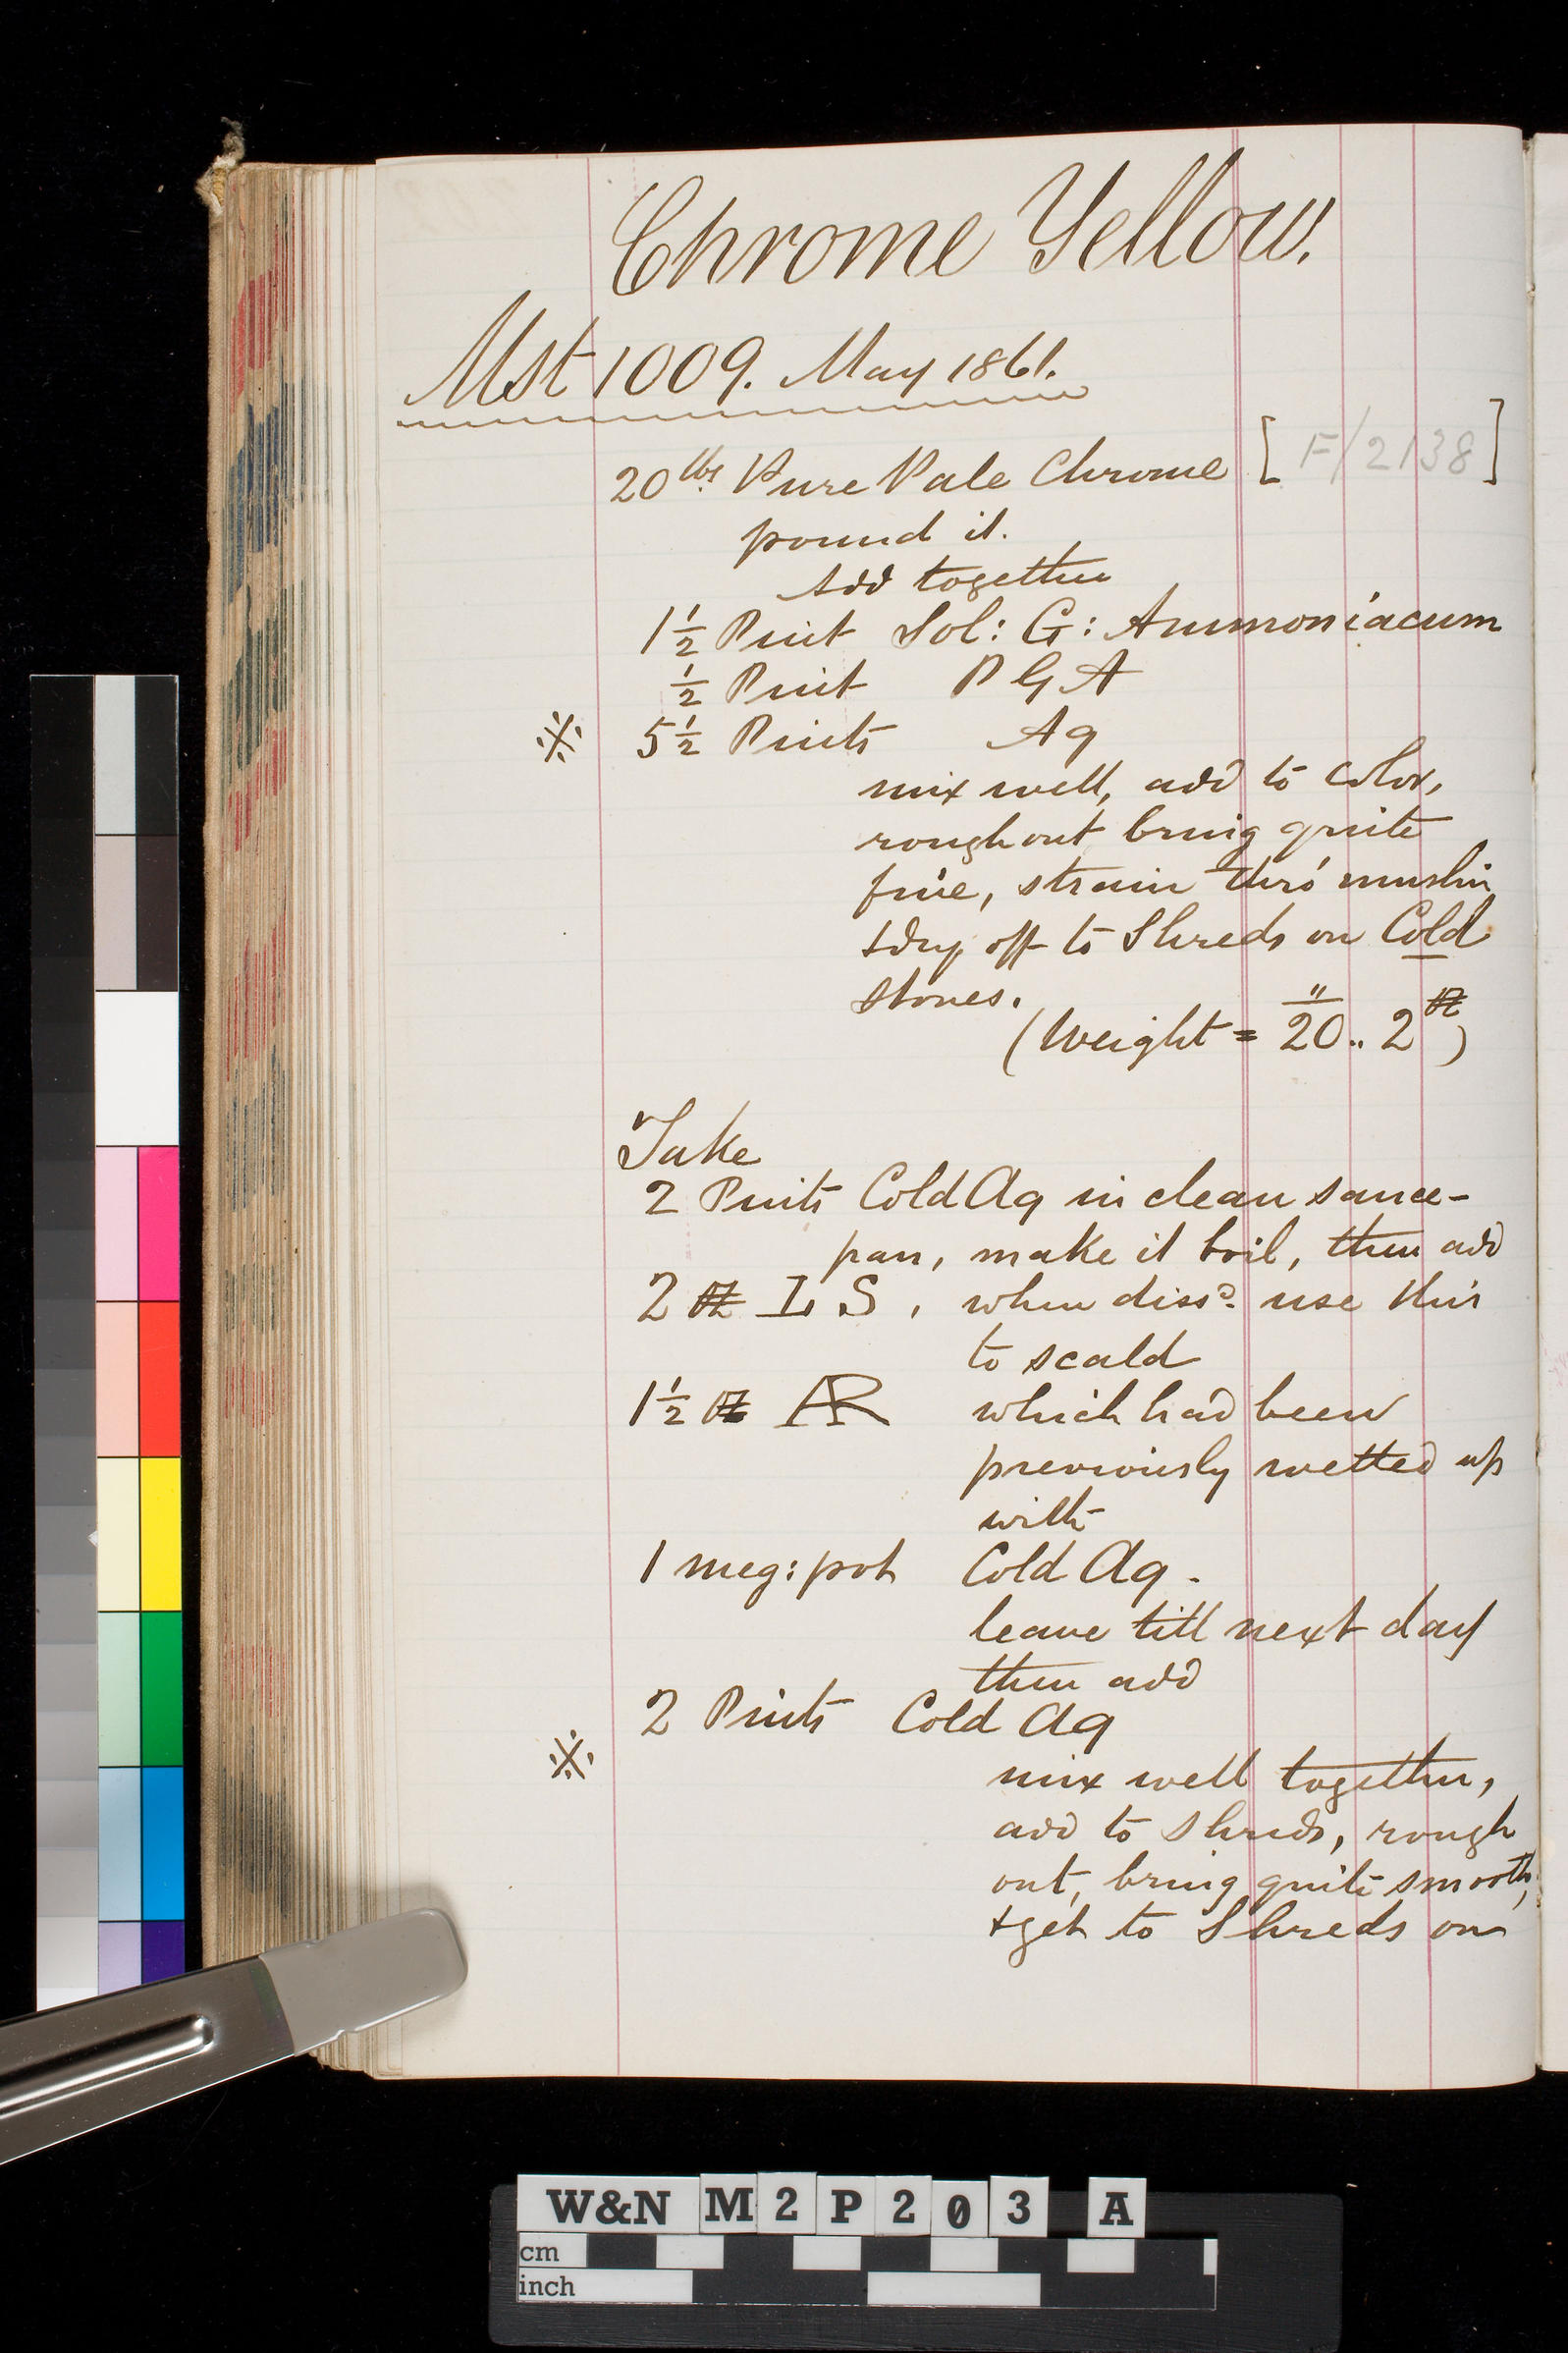 Chrome Yellow.
Mst 1009. May 1861.
20 lbs Pure Pale Chrome [F/2138]
pound it.
Add together
1 1/2 Pint Sol: G: Ammoniacum
1/2 Pint P G A
※ 5 1/2 Pints Aq
mix well, add to color,
rough out bring quite
fine, strain thro' muslin
& dry off to Shreds on Cold
stones.
(Weight = 20 .. 2 oz)
Take
2 Pints Cold Aq in clean sauce-
pan, make it boil, then add
2 oz L S, when dissd. use this
to scald
1 1/2 oz AR which had been
previously wetted up
with
1 meg: pot Cold Aq.
leave till next day
then add
2 Pints Cold Aq
※
mix well together,
add to shreds, rough
out, bring quite smooth,
& get to Shreds on
W&N M2P203 A
cm
inch